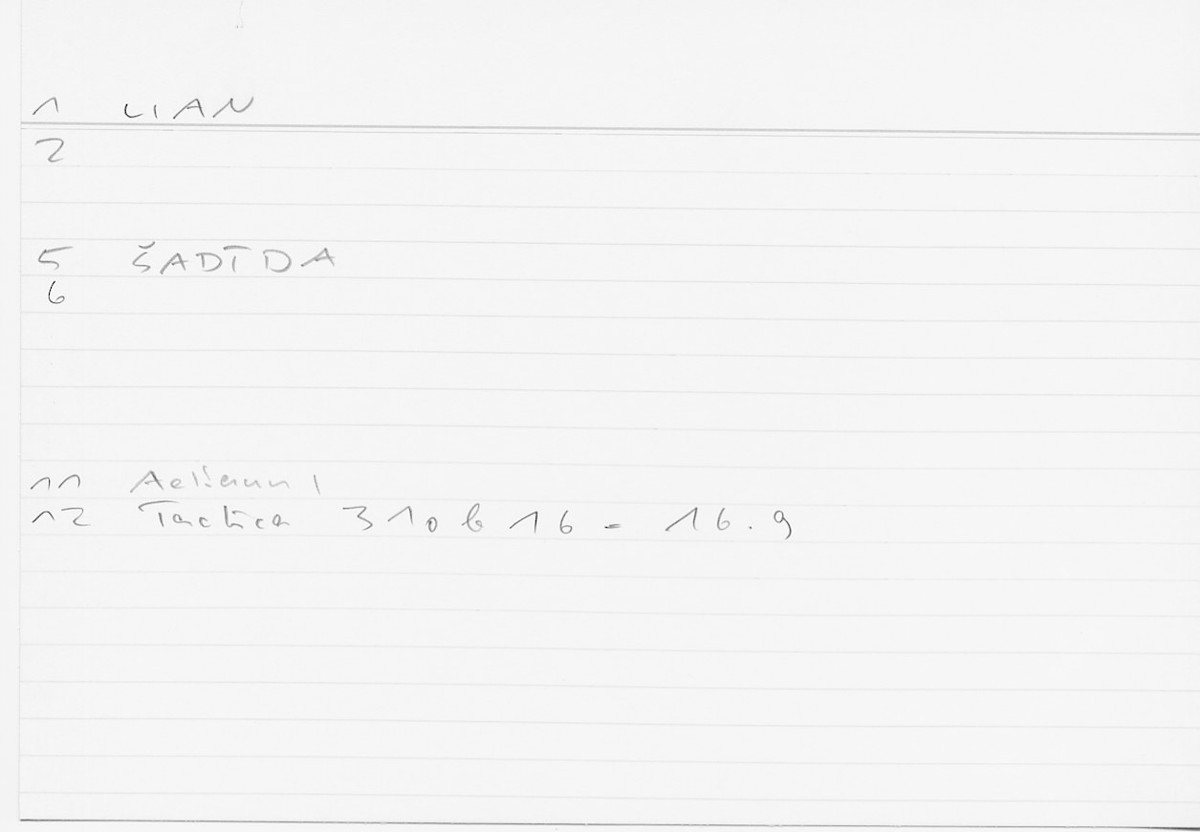 1 LIAN
2
5 ŠADĪDA
6
11 Aelianus |
12 Tactica 310b16 = 16.9